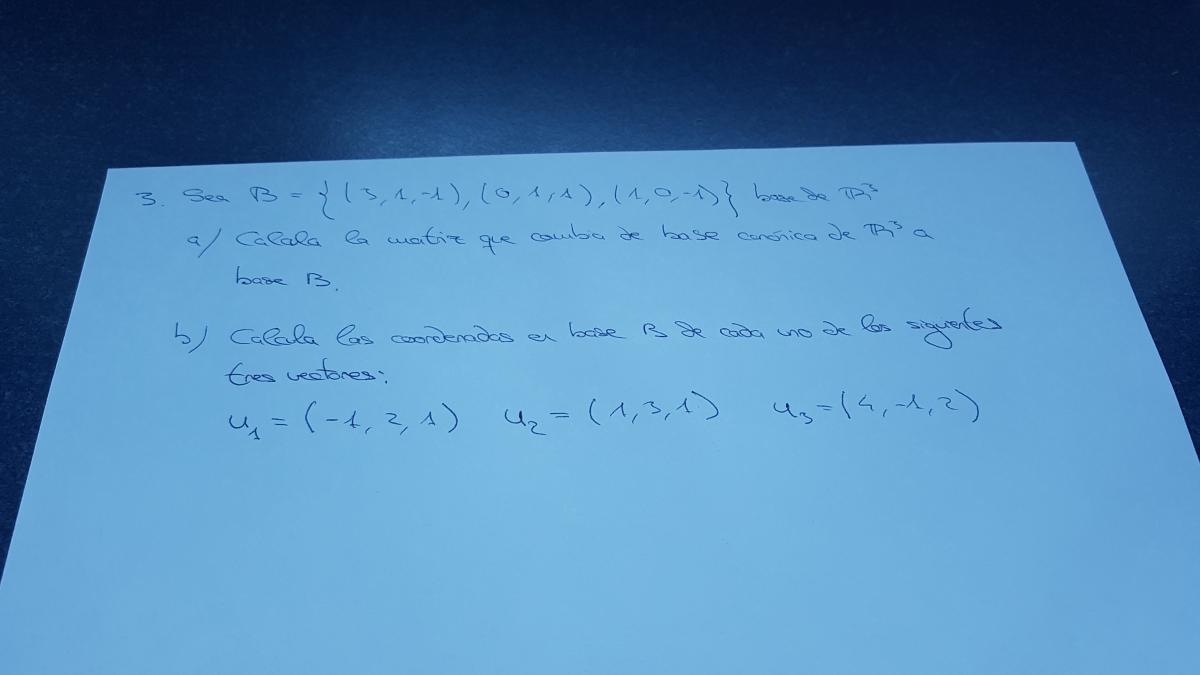 3. Sea B = { (3, 1, -1), (0, 1, 1), (1, 0, -1) } base de ℝ³
a) Calcula la matriz que cambia de base canónica de ℝ³ a
base B.
b) Calcula las coordenadas en base B de cada uno de los siguientes
tres vectores:
u₁ = (-1, 2, 1) u₂ = (1, 3, 1) u₃ = (4, -1, 2)